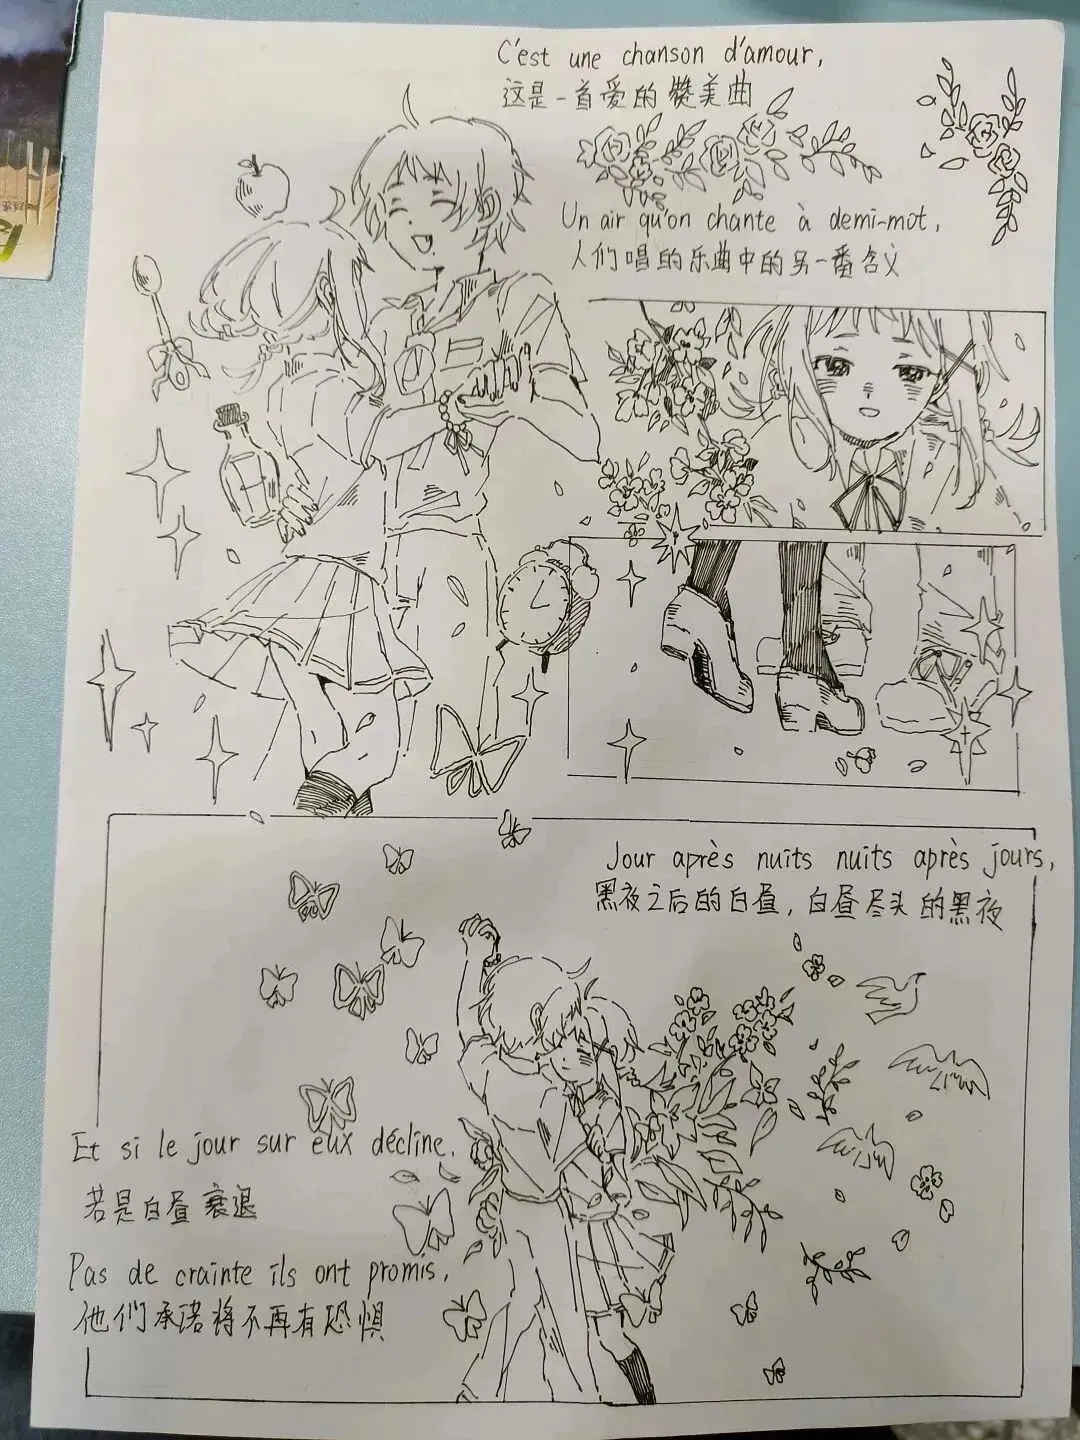 C'est une chanson d'amour,
这是一首爱的赞美曲
Un air qu'on chante à demi-mot,
人们唱的乐曲中的另一番含义
Jour après nuits nuits après jours,
黑夜之后的白昼，白昼尽头的黑夜
Et si le jour sur eux décline,
若是白昼衰退
Pas de crainte ils ont promis,
他们承诺将不再有恐惧